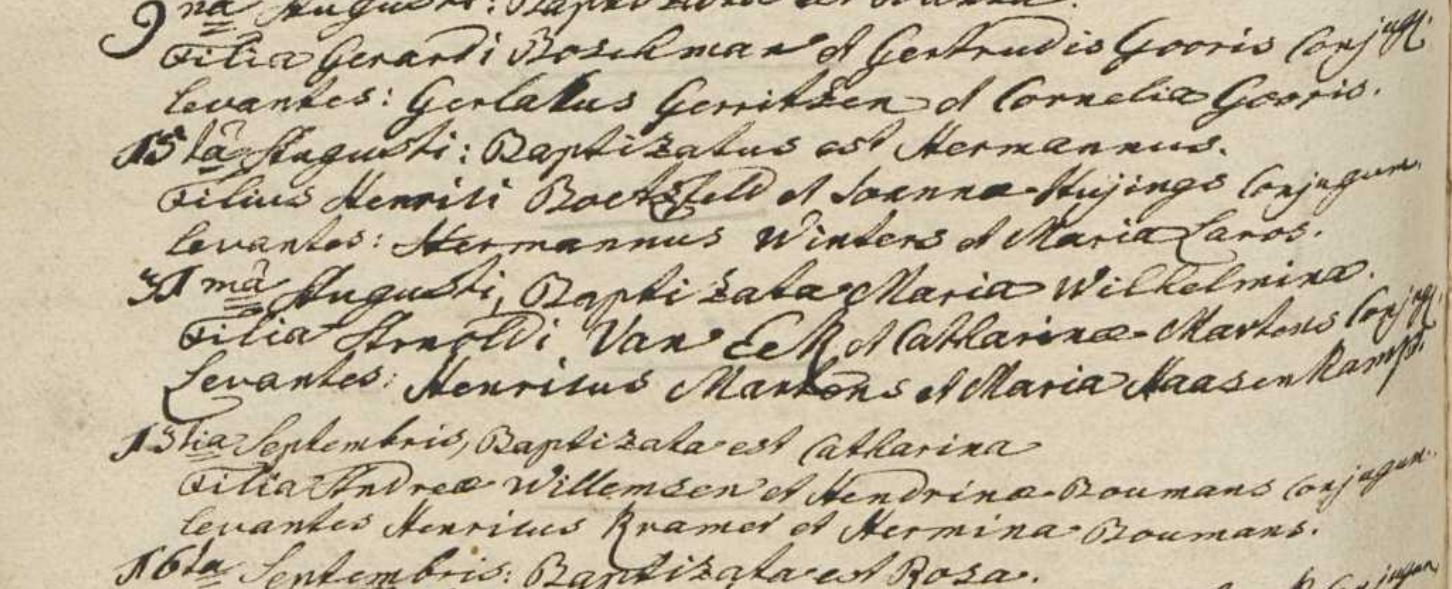 9 na Augusti: Baptizata est
Filia Gerardi Boschman et Gertrudis Gooris Conjug.
levantes: Gerlacus Gerritsen et Cornelia Gooris.
15 ta Augusti: Baptizatus est Hermannus.
Filius Henrici Boetsfeld et Joannæ Hujings Conjugum.
levantes: Hermannus Winters et Maria Laros.
31 ma Augusti, Baptizata Maria Wilhelmina.
Filia Arnoldi Van Eck et Catharinæ Martens Conjug.
Levantes: Henricus Martens et Maria Haasenkamp.
13 tia Septembris, Baptizata est Catharina
Filia Andreæ Willemsen et Hendrinæ Boumans Conjugum.
levantes Henricus Kramer et Hermina Boumans.
16 ta Septembris: Baptizata est Rosa.
Conjugum